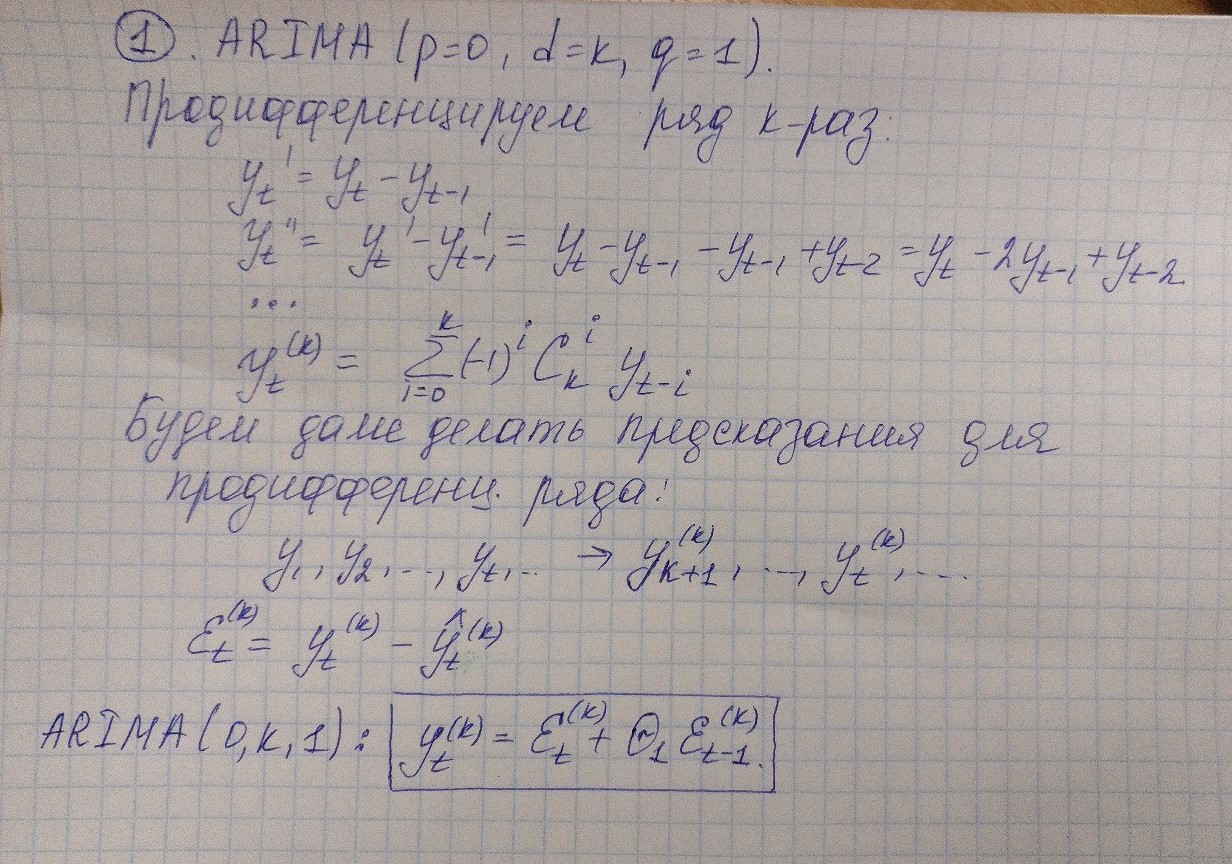 ①. ARIMA (p=0, d=k, q=1).
Продифференцируем ряд k-раз:
y_t' = y_t - y_{t-1}
y_t'' = y_t' - y_{t-1}' = y_t - y_{t-1} - y_{t-1} + y_{t-2} = y_t - 2y_{t-1} + y_{t-2}
...
y_t^{(k)} = \sum_{i=0}^{k} (-1)^i C_k^i y_{t-i}
Будем далее делать предсказания для
продифференц. ряда:
y_1, y_2, ..., y_t, .. → y_{k+1}^{(k)}, ..., y_t^{(k)}, ...
ε_t^{(k)} = y_t^{(k)} - ŷ_t^{(k)}
ARIMA (0, k, 1): y_t^{(k)} = ε_t^{(k)} + Θ_1 ε_{t-1}^{(k)}.